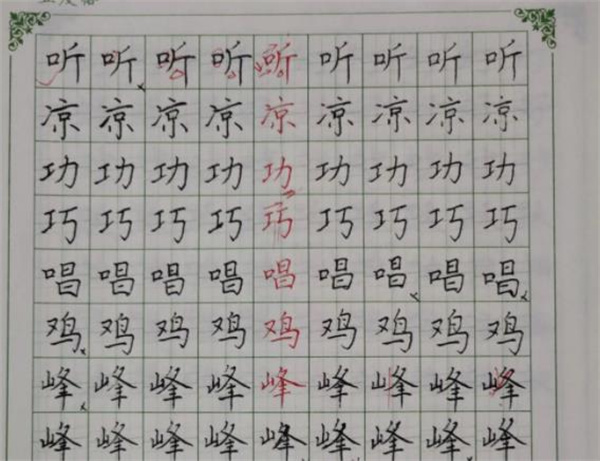 听听听听听听听听听
凉凉凉凉凉凉凉凉凉
功功功功功功功功功
巧巧巧巧巧巧巧巧巧
唱唱唱唱唱唱唱唱唱
鸡鸡鸡鸡鸡鸡鸡鸡鸡
峰峰峰峰峰峰峰峰峰
峰峰峰峰峰峰峰峰峰